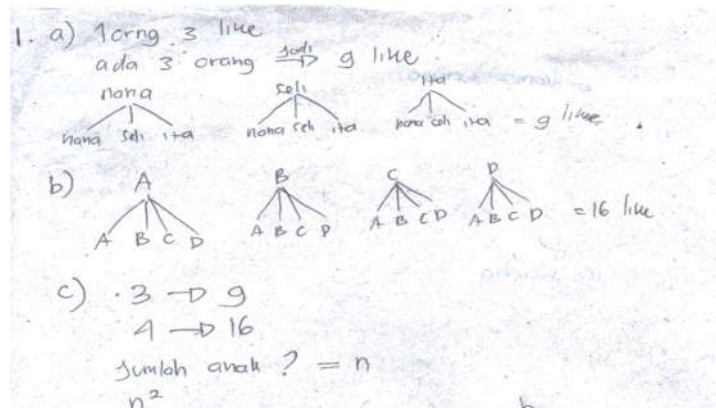 1. a) 1orng 3 like
ada 3 orang jadi → 9 like
nana seli ita
nana seli ita nana seli ita nana seli ita = 9 like.
b) A B C D
A B C D A B C D A B C D A B C D = 16 like
c) . 3 → 9
4 → 16
Jumlah anak ? = n
n²